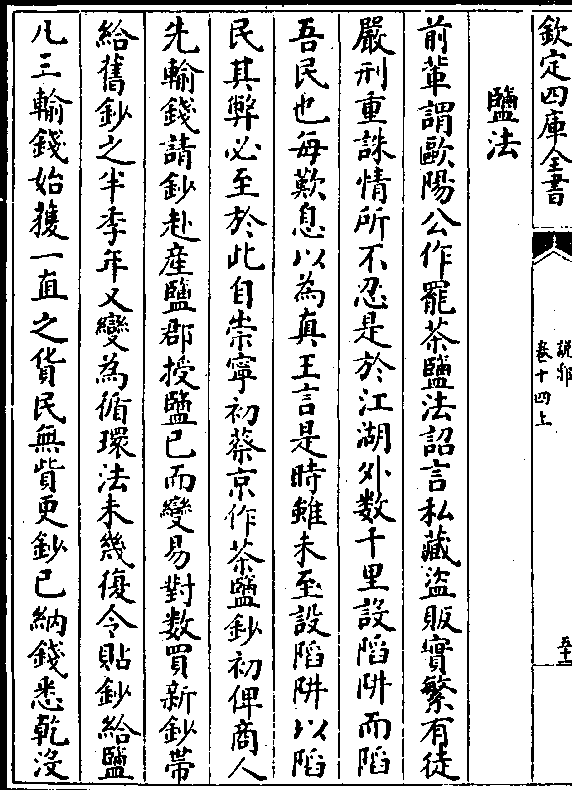 欽定四庫全書
說郛
卷十四上
五十二
鹽法
前輩謂歐陽公作罷茶鹽法詔言私藏盜販實繁有徒
嚴刑重誅情所不忍是於江湖外數千里設陷阱而陷
吾民也每歎息以為真王言是時雖未至設陷阱以陷
民其弊必至於此自崇寧初蔡京作茶鹽鈔初俾商人
先輸錢請鈔赴產鹽郡授鹽已而變易對數買新鈔帶
給舊鈔之半季年又變為循環法未幾復令貼鈔給鹽
凡三輸錢始獲一直之貨民無貲更鈔已納錢悉乾沒